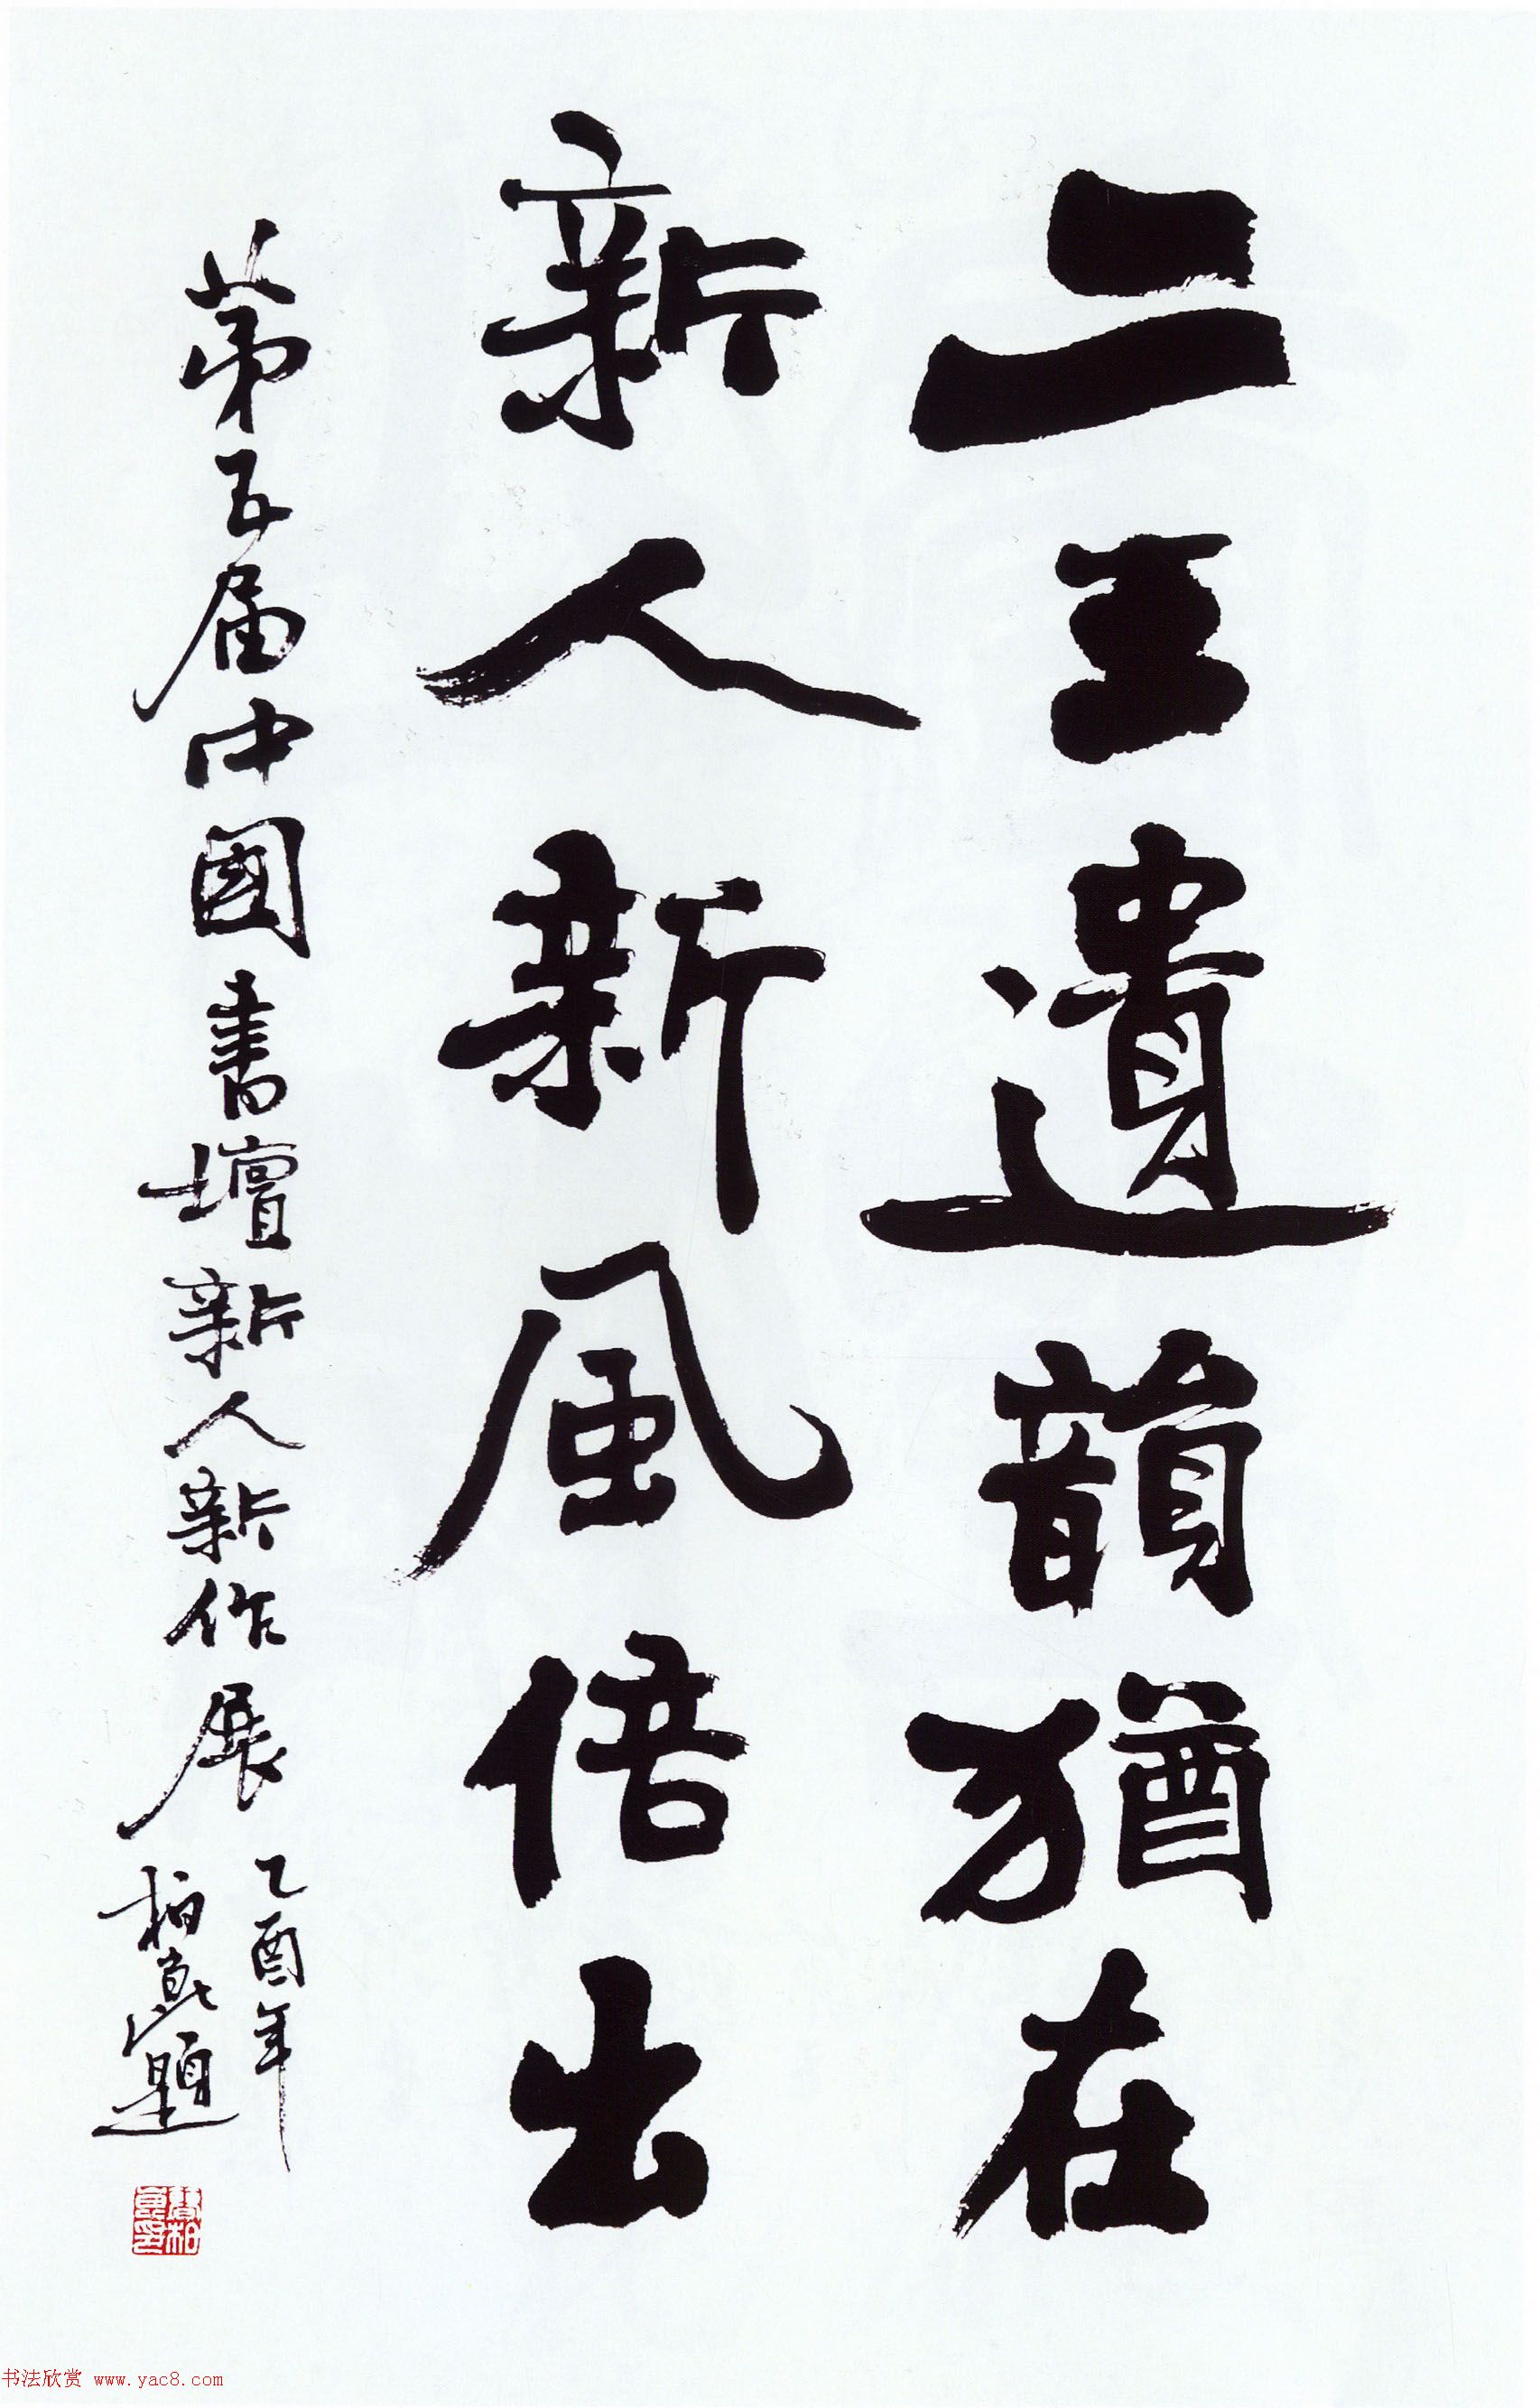 二王遺韻猶在
新人新風倍出
第五届中國書壇新人新作展
乙酉年
柏衮題
书法欣赏 www.yac8.com